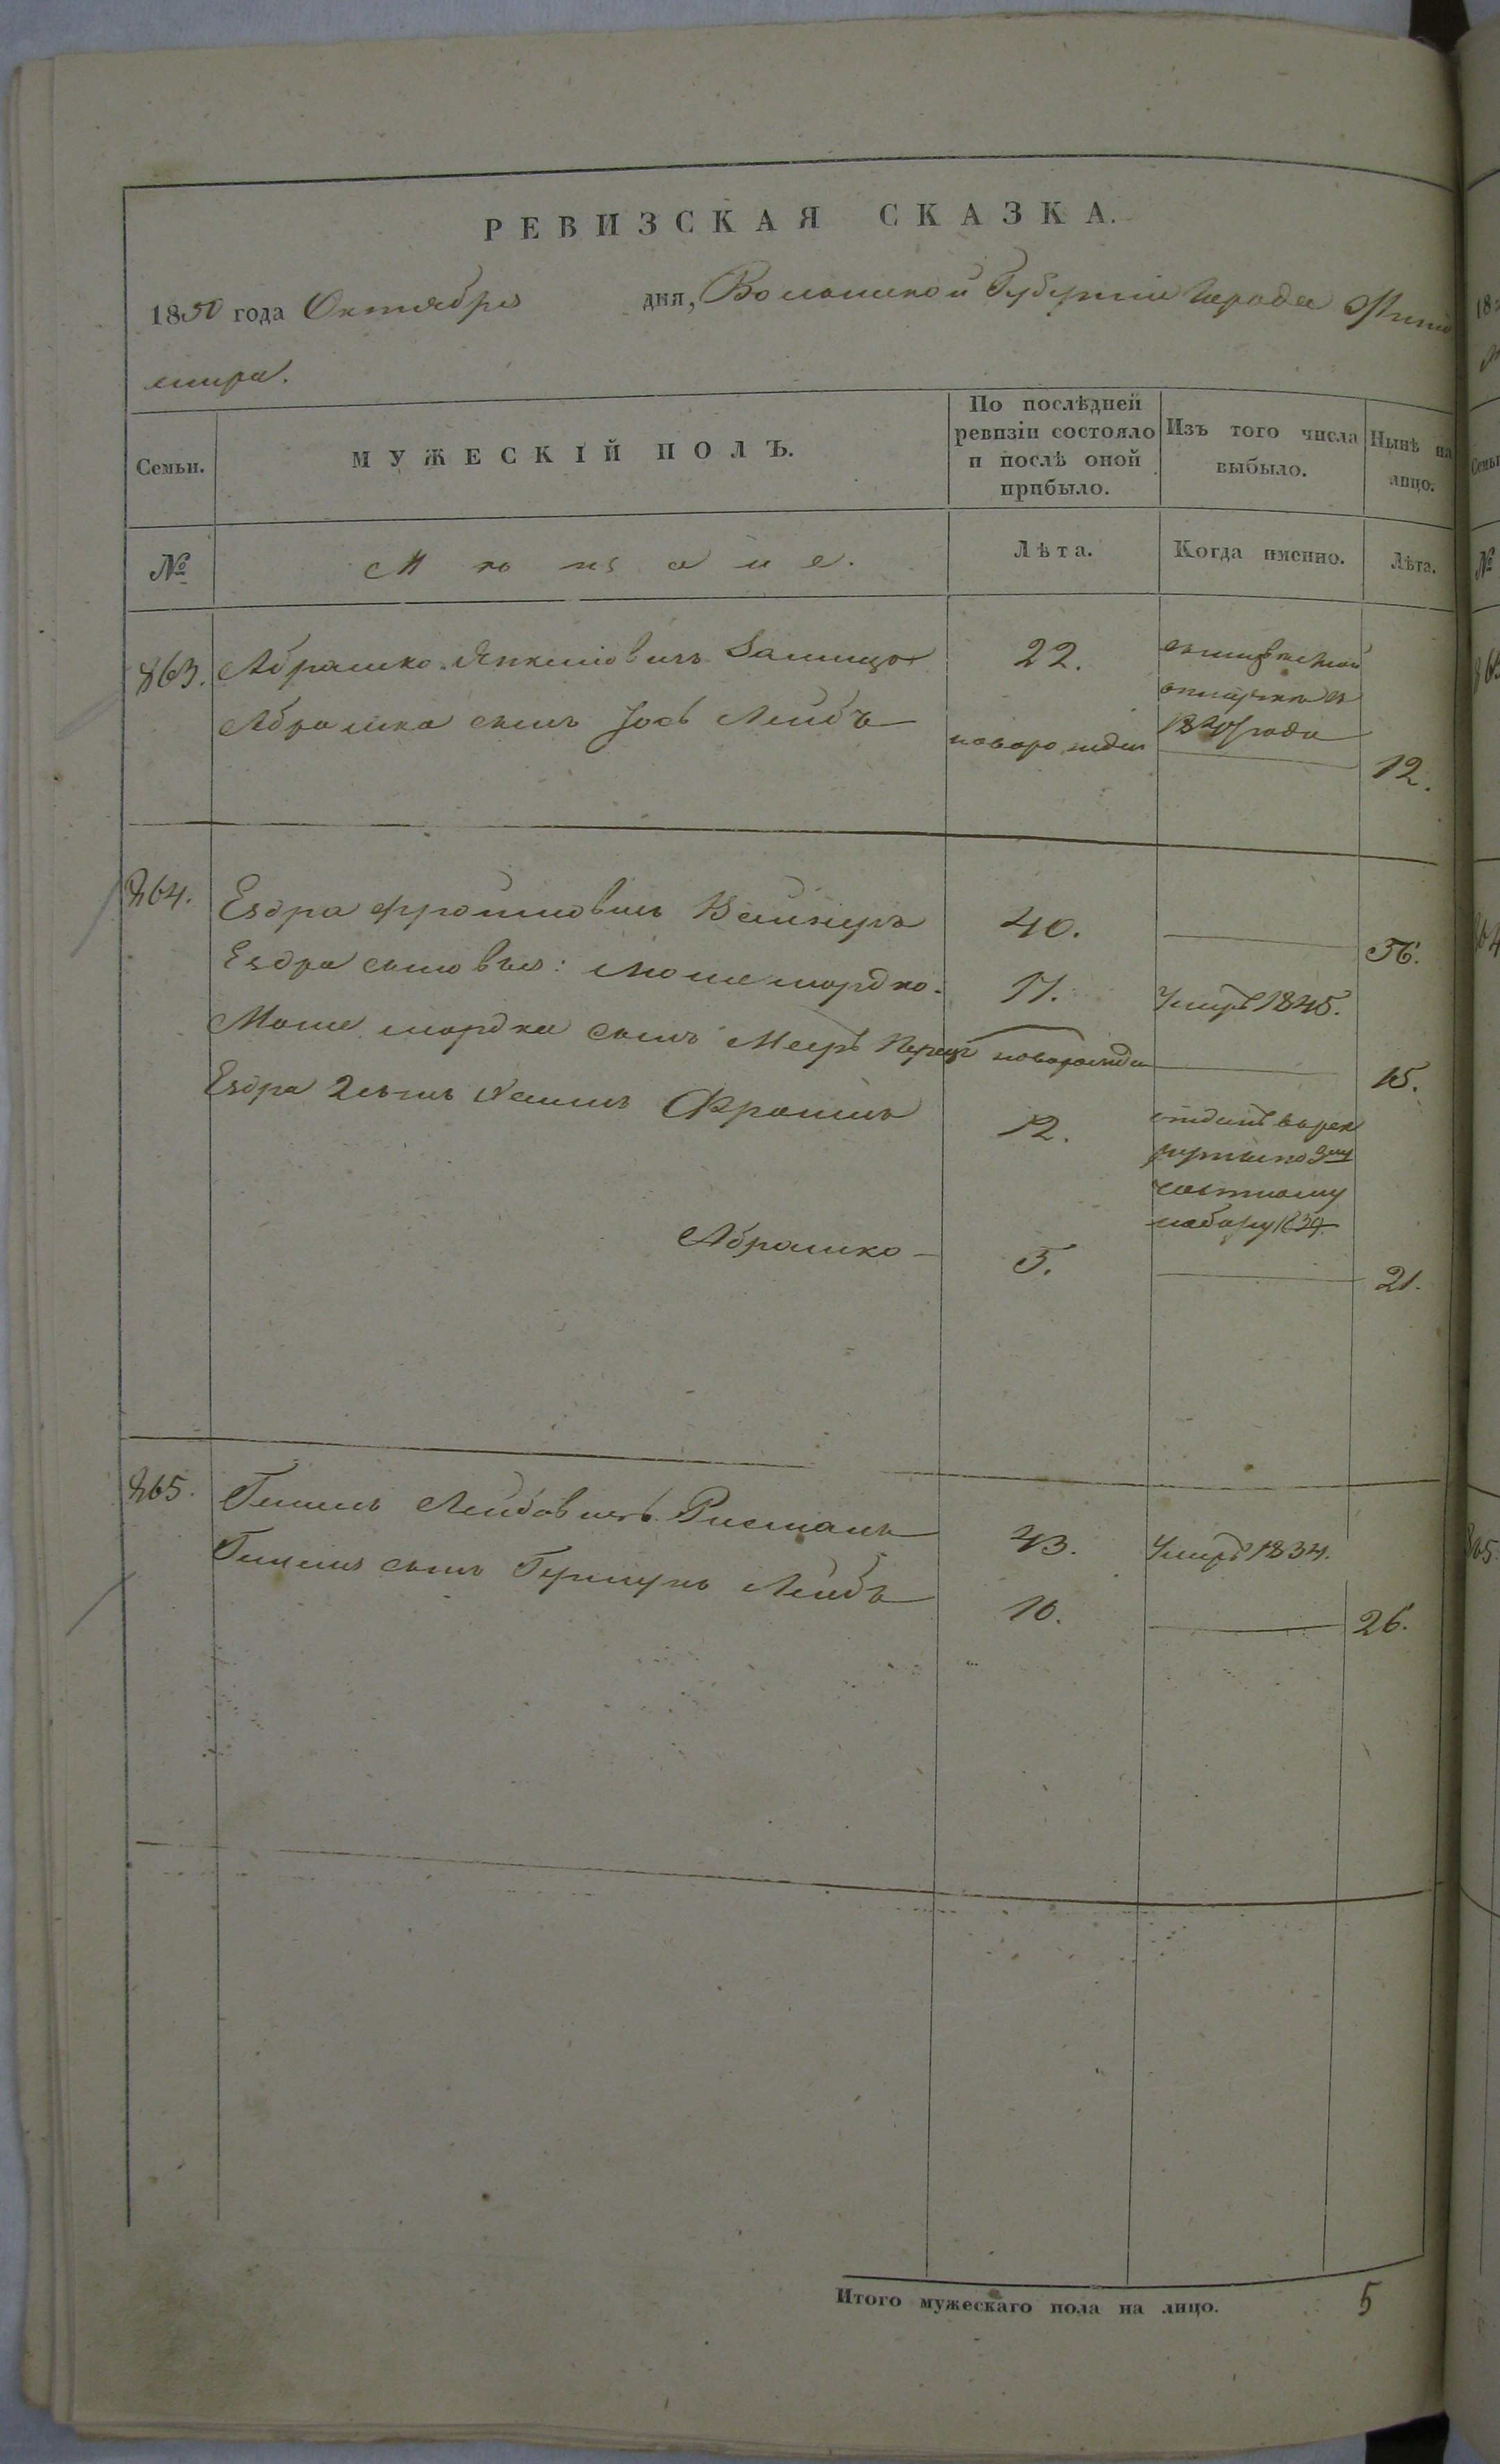 РЕВИЗСКАЯ СКАЗКА.
1850 года Октября дня, Волынской Губерніи города Жито
мира.
Семьи.
МУЖЕСКІЙ ПОЛЪ.
По послѣдней
ревизіи состояло
и послѣ оной
прибыло.
Изъ того числа
выбыло.
Нынѣ на
лицо.
№
Мѣщане.
Лѣта.
Когда именно.
Лѣта.
863. Абрамко Янкелiовичъ 22.
Абрамка сынъ Іось Лейбъ новорожден 12.
1840 года
864. Ездра Фроимовичъ Вайнеръ 40. 56.
Ездра сыновья: Моше мордко. 17. Умеръ 1845.
Моше мордка сынъ Мееръ Перецъ новорожден 15.
Ездра 2 сынъ Хаимъ Фроимъ 12. отданъ въ рек
руты по 9му
частному
набору 1839.
Абрамко 5. 21.
865. Лейбовичъ 43. Умеръ 1834.
сынъ Лейбъ 10. 26.
Итого мужескаго пола на лицо. 5